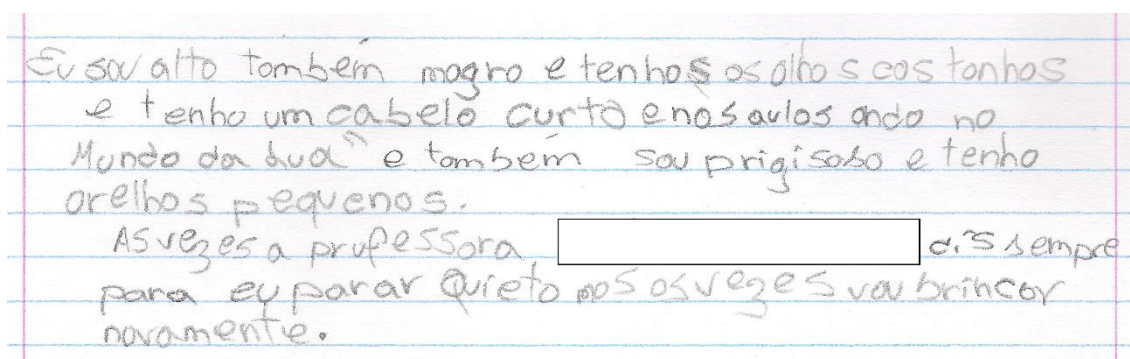 Eu sou alto tombem magro e tenhos os olhos costonhos
e tenho um cabelo curto e nas aulas ando no
Mundo da Lua" e tombem sou prigisoso e tenho
orelhos pequenos.
As vezes a prufessora dis sempre
para eu parar Quieto mos os vezes vou brincor
novamente.